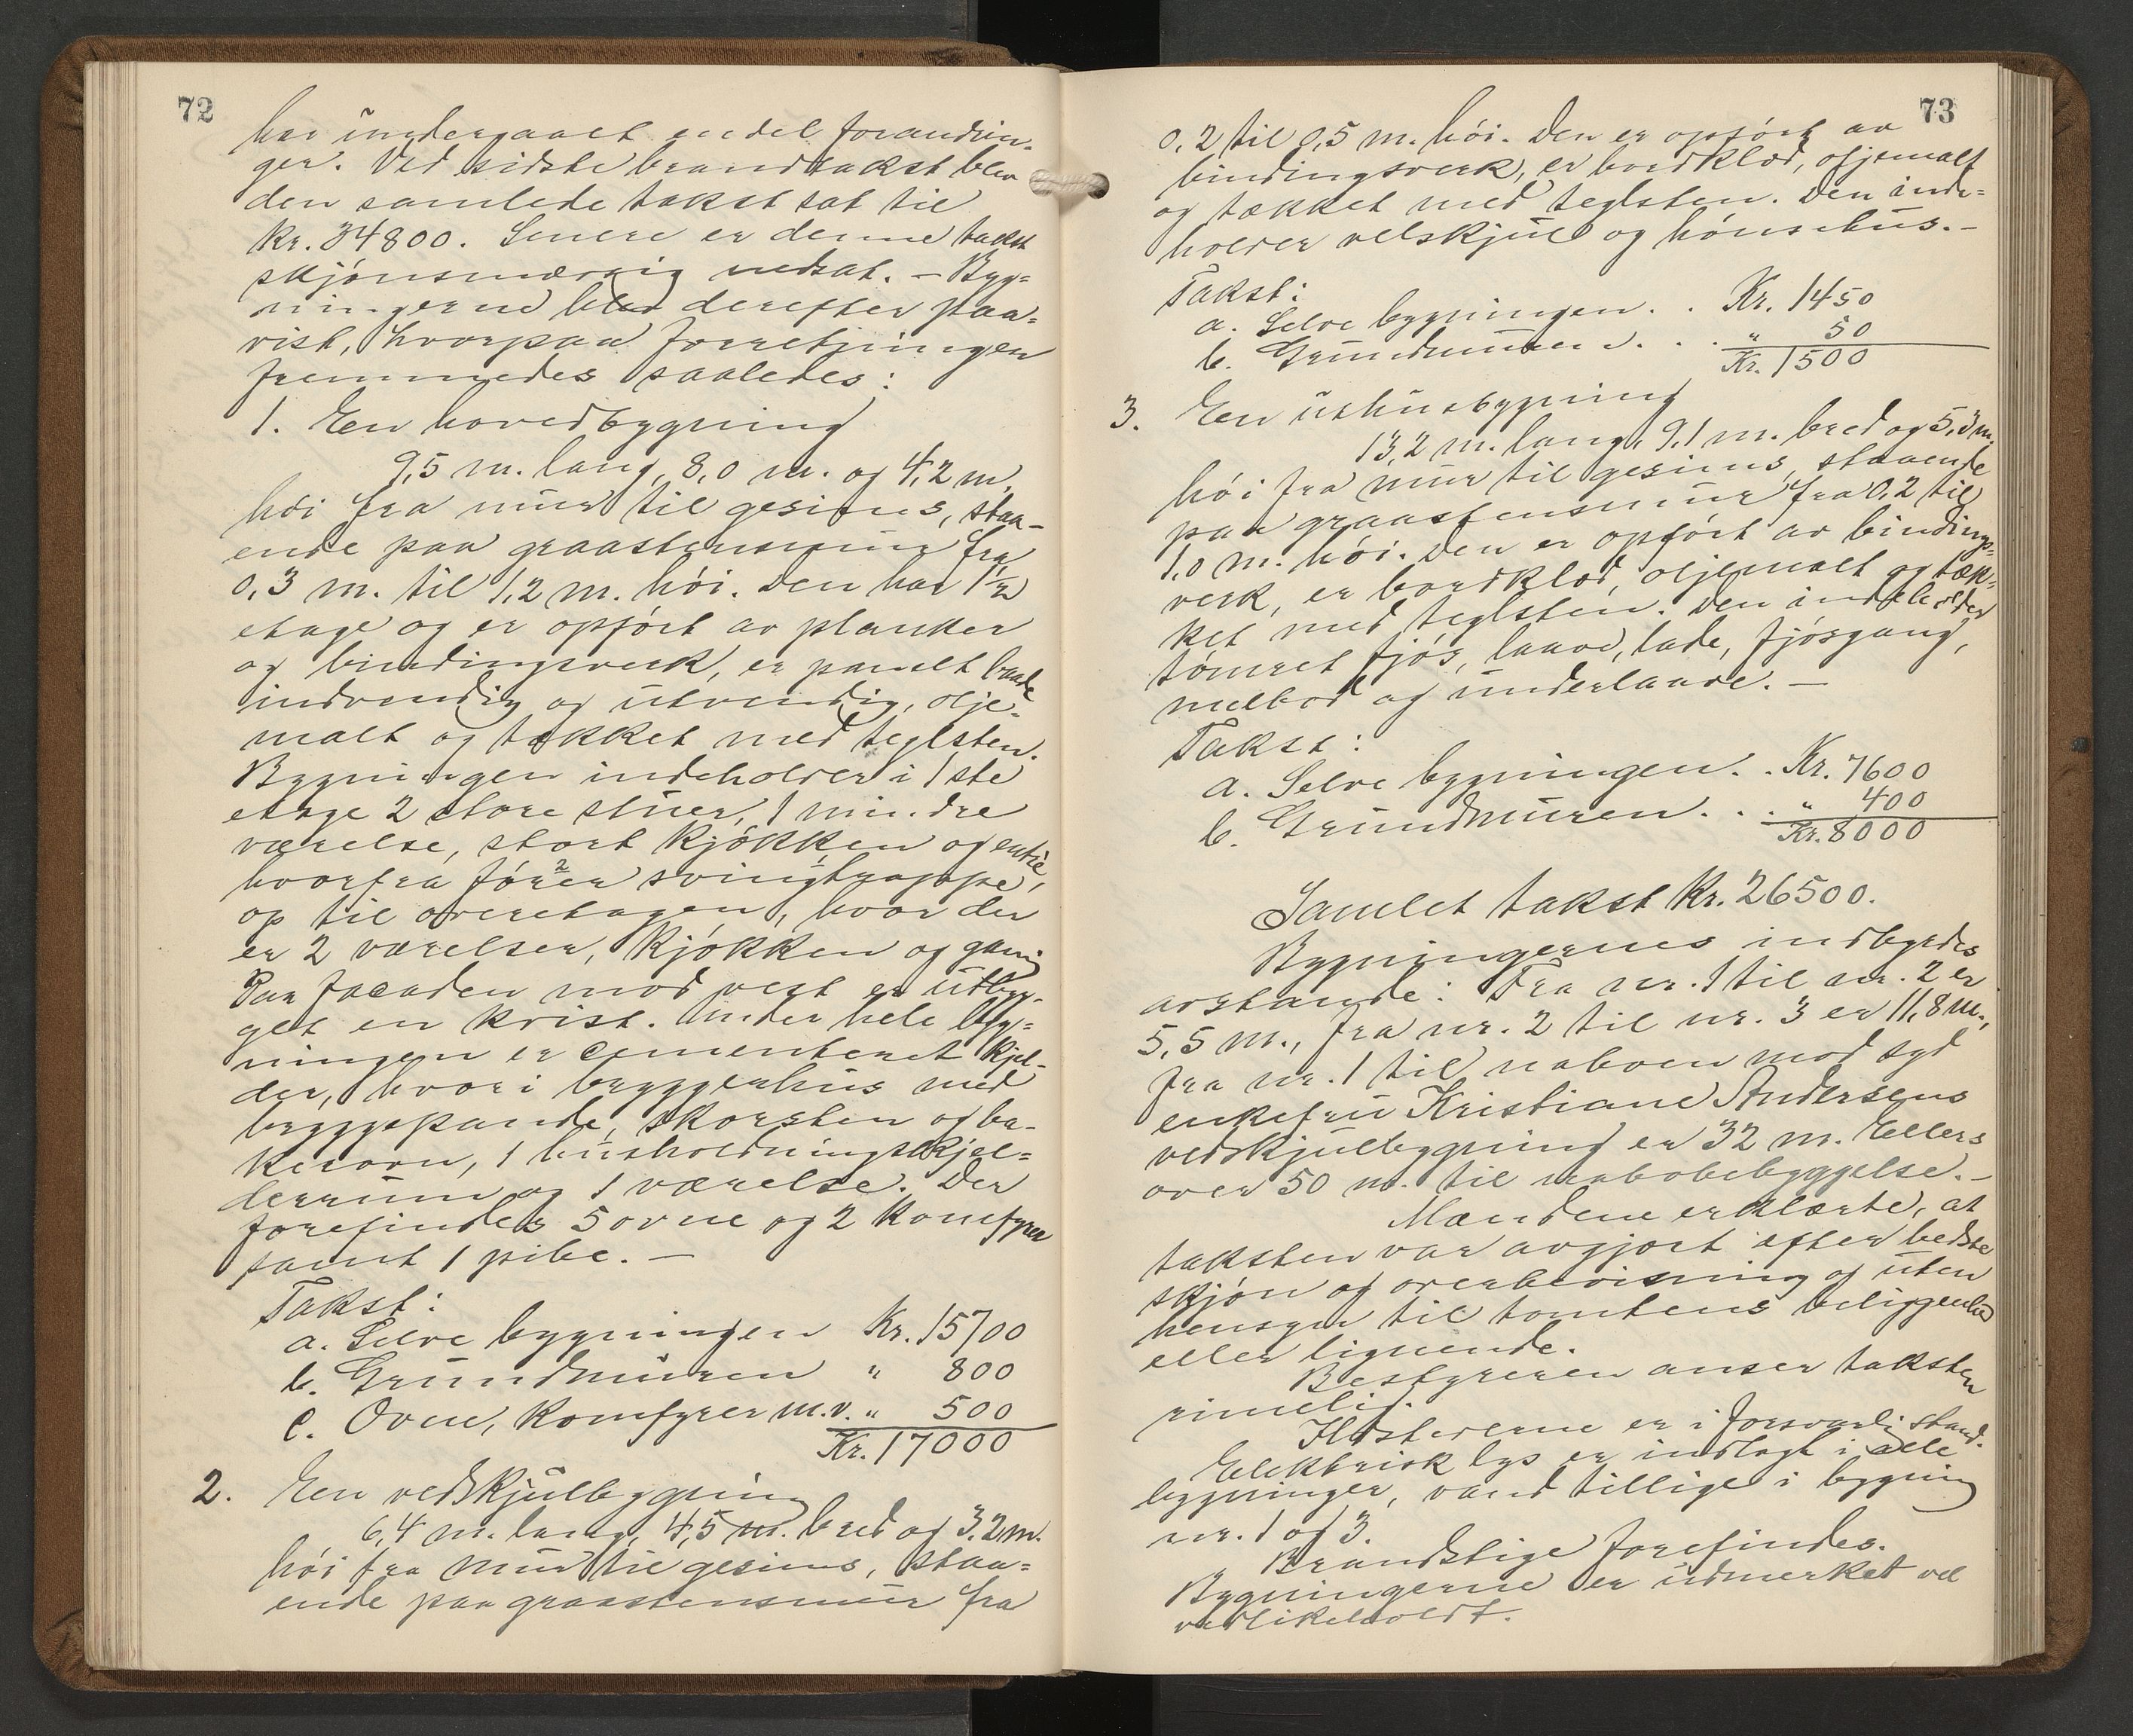 72
har undergaaet endel forandrin-
ger. Ved sidste brandtakst blev
den samlede takst sat til
kr. 34800. Senere er denne takst
skjønsmæssig nedsat. — Byg=
ningerne blev derefter paa=
vist, hvorpaa forretningen
fremmedes saaledes:
1. En hovedbygning
9,5 m. lang, 8,0 m. og 4,2 m.
høi fra mur til gesims, staa-
ende paa graastensmur fra
0,3 m. til 1,2 m. høi. Den har 1½
etage og er opført av planker
og bindingsverk, er panelt baade
indvendig og utvendig, olje-
malt og tækket med teglsten.
Bygningen indeholder i 1ste
etage 2 store stuer, 1 mindre
værelse, stort kjøkken og entré,
hvorfra fører svingtrappe,
op til overetagen, hvor der
er 2 værelser, kjøkken og gang
Paa facaden mod vest er utbyg-
get en kvist. Under hele byg=
ningen er cementeret kjel-
der, hvori bryggerhus med
bryggepande, skorsten og ba-
kerovn, 1 husholdningskjel=
derrum og 1 værelse. Der
forefindes 5 ovne og 2 komfyrer
samt 1 pibe. —
Takst:
a. Selve bygningen Kr. 15700
b. Grundmuren " 800
c. Ovne, komfyrer m.v. " 500
Kr. 17000
2. En vedskjulbygning
6,4 m. lang, 4,5 m. bred og 3,2 m.
høi fra mur til gesims, staa=
ende paa graastensmur fra
73
0,2 til 0,5 m. høi. Den er opført av
bindingsverk, er bordklæd, oljemalt
og tækket med teglsten. Den inde=
holder vedskjul og hønsehus. —
Takst:
a. Selve bygningen . . Kr. 1450
b. Grundmuren . . . " 50
Kr. 1500
3. En uthusbygning
13,2 m. lang, 9,1 m. bred og 5,3 m.
høi fra mur til gesims, staaende
paa graastensmur fra 0,2 til
1,0 m. høi. Den er opført av bindings=
verk, er bordklæd, oljemalt og tæk-
ket med teglsten. Den indeholder
tømret fjøs, laave, lade, fjøsgang,
melbod og underlaave. —
Takst:
a. Selve bygningen . . Kr. 7600
b. Grundmuren . . . " 400
Kr. 8000
Samlet takst Kr. 26500.
Bygningernes indbyrdes
avstande: Fra nr. 1 til nr. 2 er
5,5 m., fra nr. 2 til nr. 3 er 11,8 m.,
fra nr. 1 til naboen mod syd
enkefru Kristiane Andersens
vedskjulbygning er 32 m. Ellers
over 50 m. til nabobebyggelse. —
Mændene erklærte, at
taksten var avgjort efter bedste
skjøn og overbevisning og uten
hensyn til tomtens beliggenhed
eller lignende.
Bestyreren anser taksten
rimelig.
Ildstederne er i forsvarlig stand.
Elektrisk lys er indlagt i alle
bygninger, vand tillige i bygning
nr. 1 og 3.
Brandstige forefindes.
Bygningerne er udmerket vel
vedlikeholdt.